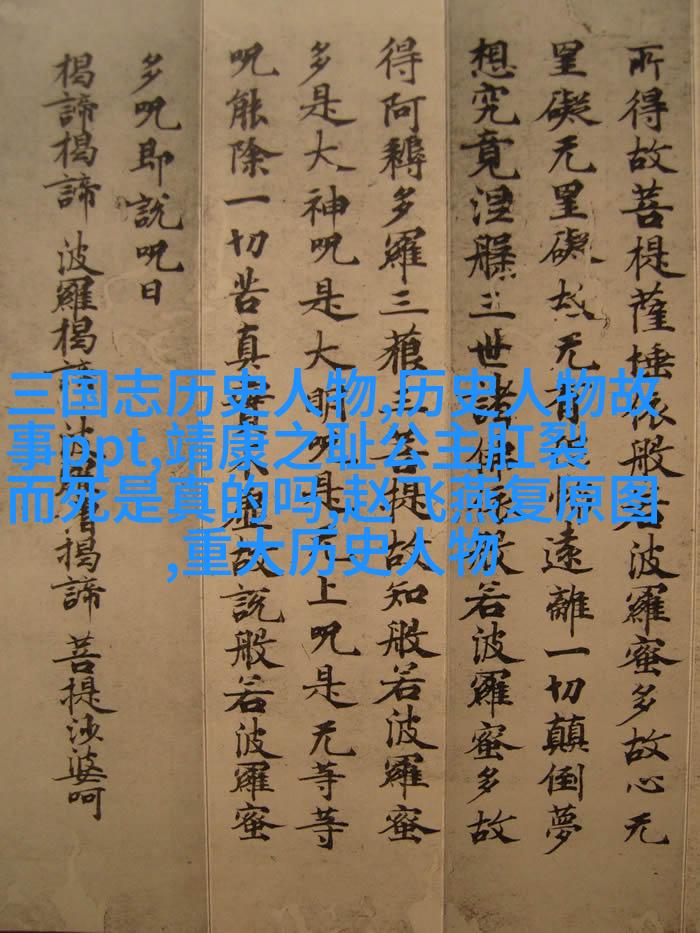 所得故菩提薩埵依般若波羅蜜多故心无
罣礙无罣礙故无有恐怖遠離一切顛倒夢
想究竟涅槃三世諸佛依般若波羅蜜多故
得阿耨多羅三藐三菩提故知般若波羅蜜
多是大神呪是大明呪是无上呪是无等等
呪能除一切苦真實不虛故說般若波羅蜜
多呪即說呪曰
揭諦揭諦 波羅揭諦 波羅僧揭諦 菩提沙婆呵
三国志历史人物,历史人物故
事ppt,靖康之耻公主肛裂
而死是真的吗,赵飞燕复原图
,重大历史人物